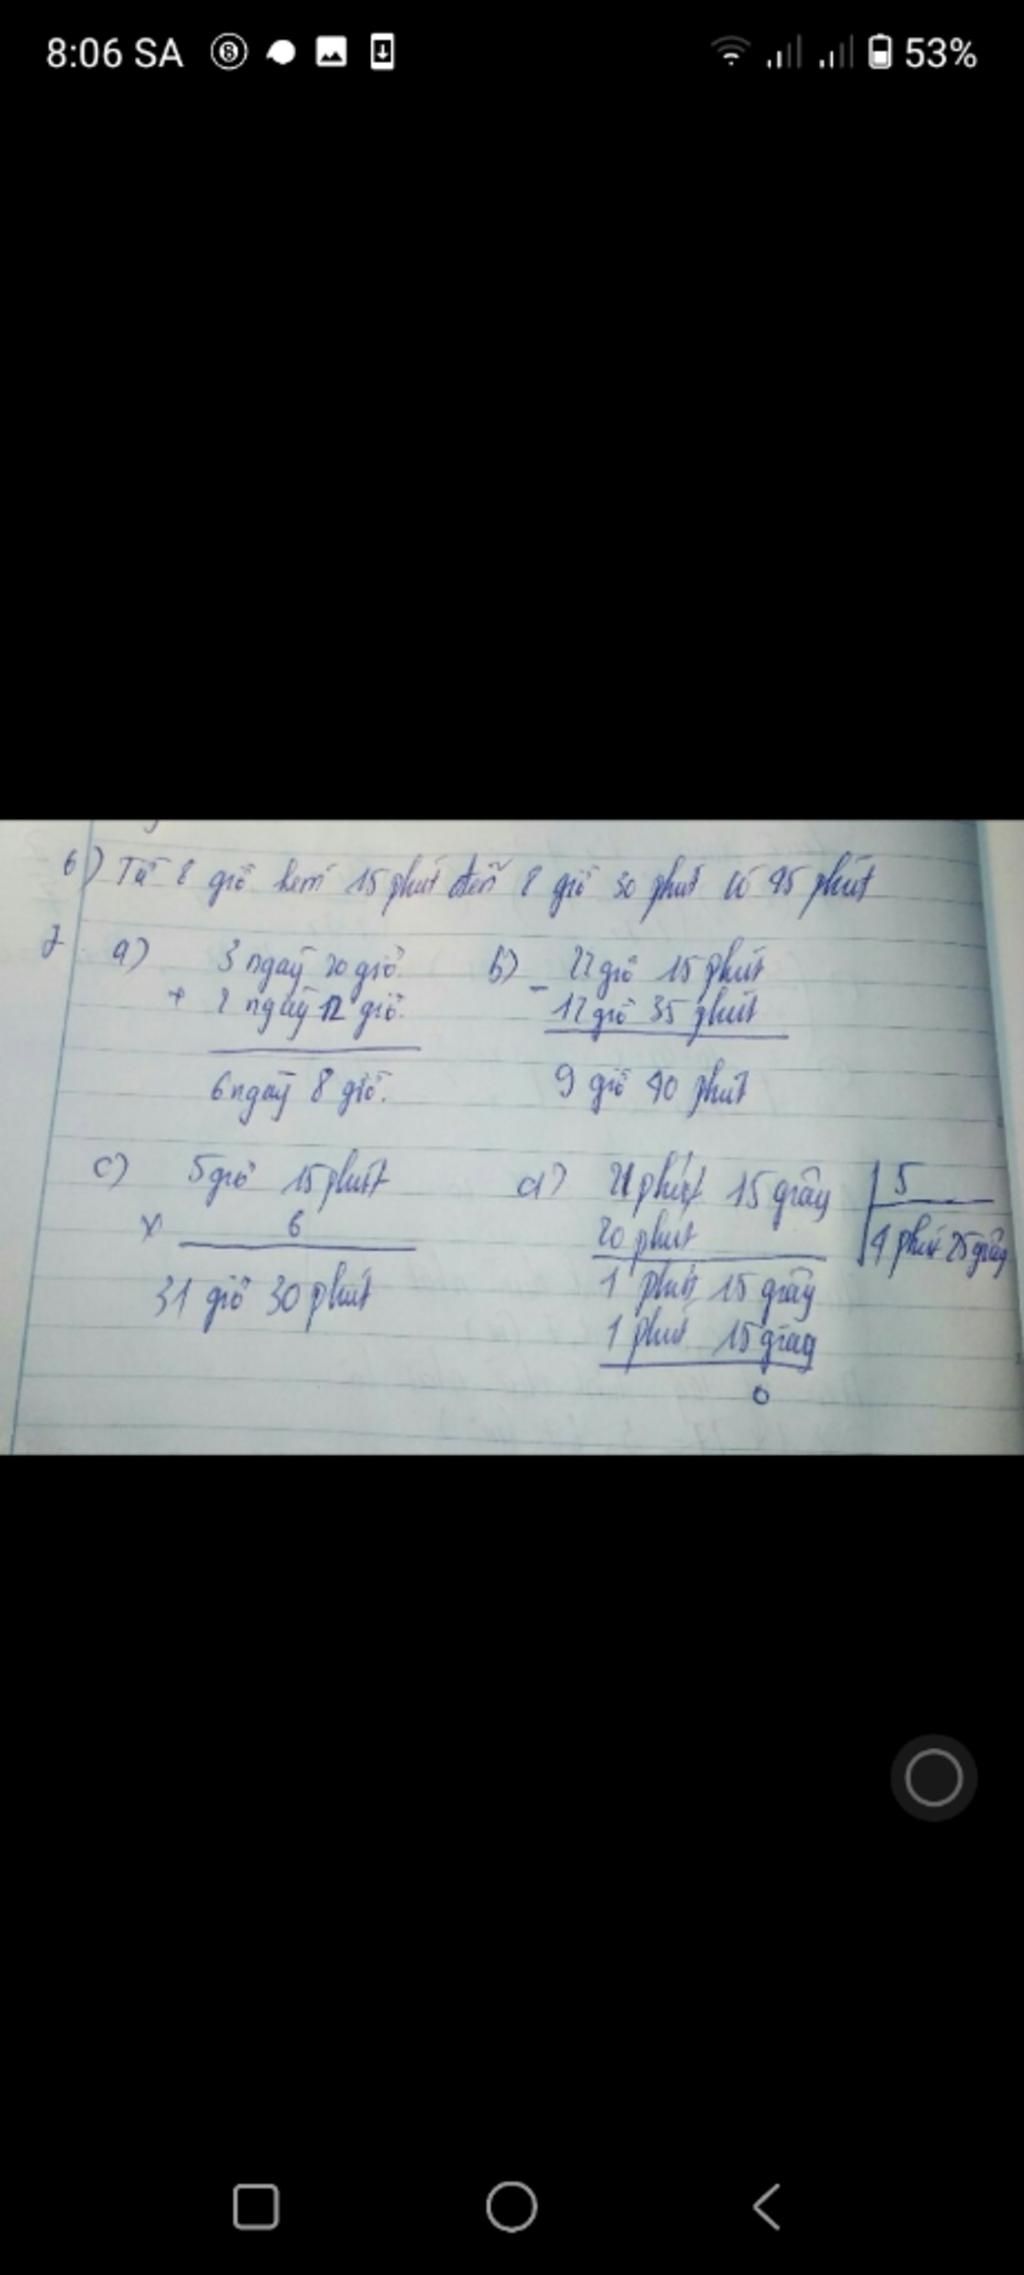 8:06 SA 53%
6) Từ 8 giờ kém 15 phút đến 8 giờ 30 phút có 45 phút
7 a) 3 ngày 20 giờ
+ 2 ngày 12 giờ
6 ngày 8 giờ.
b) - 22 giờ 15 phút
12 giờ 35 phút
9 giờ 40 phút
c) 5 giờ 15 phút
x 6
31 giờ 30 phút
d) 21 phút 15 giây 5
20 phút 4 phút 25 giây
1 phút 15 giây
1 phút 15 giây
0